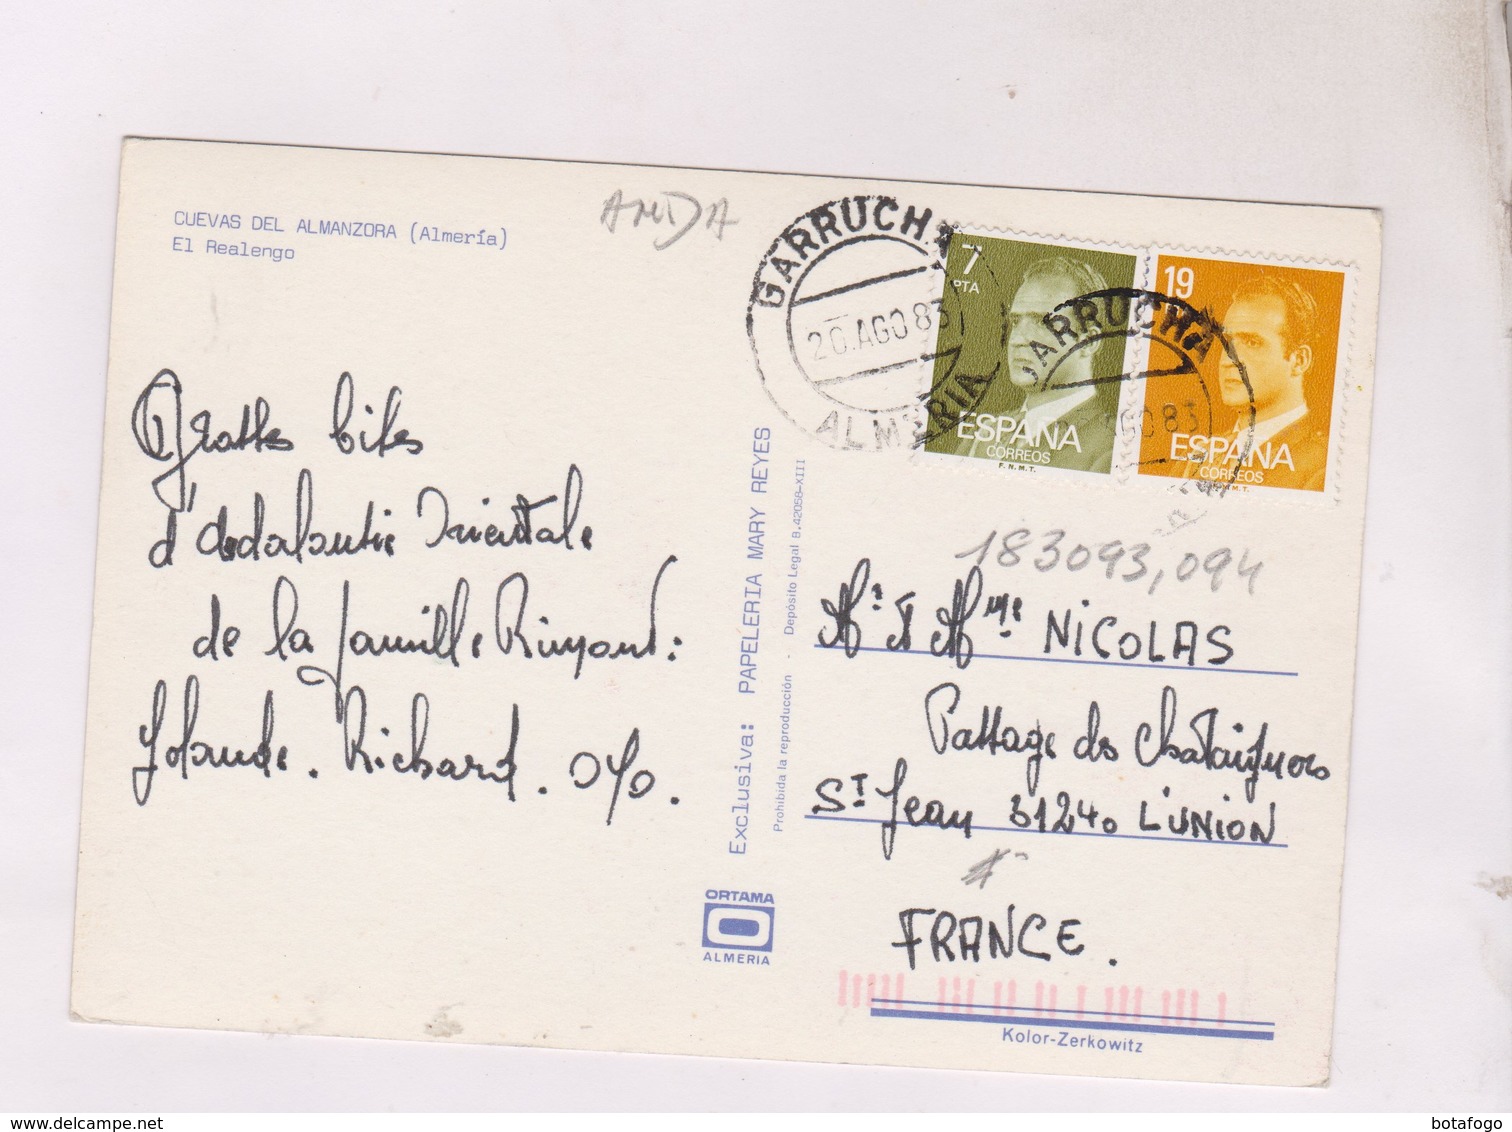 CUEVAS DEL ALMANZORA (Almería)
El Realengo
AMDA
GARRUCHA
20.AGO83
ALMERIA
7
PTA
ESPAÑA
CORREOS
F.N.M.T.
GARRUCHA
GO83
19
ESPAÑA
CORREOS
183093,094
Grattes bites
d'Andaloutie Orientale
de la famille Rimont:
Yolande. Richard.
Exclusiva: PAPELERIA MARY REYES
Prohibida la reproducción - Depósito Legal B.42058-XIII
ORTAMA
ALMERIA
Mr et Mme NICOLAS
Passage des Chataigners
ST Jean 31240 L'UNION
FRANCE.
Kolor-Zerkowitz
botafogo
delcampe.net